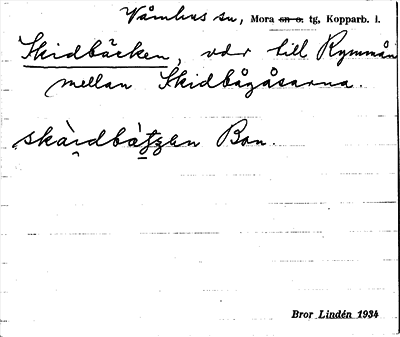 Våmhus sn, Mora sn o. tg, Kopparb. l.
Skidbäcken, vdr till Rymmån
mellan Skidbågåsarna.
Bon.
Bror Lindén 1934